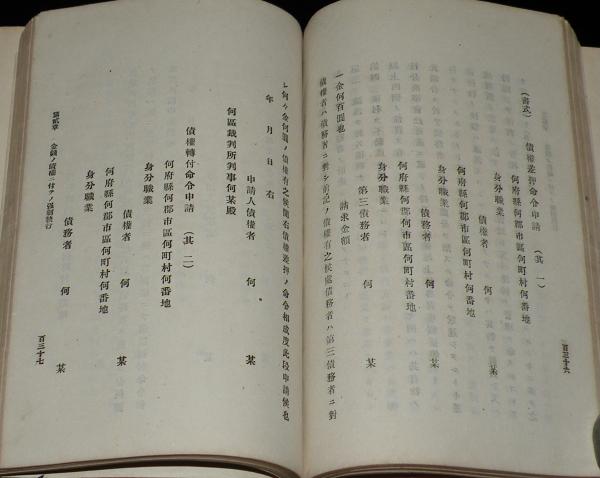 (書式)
債權差押命令申請 (其一)
何府縣何郡市區何町村何番地
身分職業
債權者 何 某
何府縣何郡市區何町村何番地
身分職業
債務者 何 某
何府縣何郡市區何町村何番地
身分職業
第三債務者 何 某
請求金額
一金何百圓也
債權者ハ債務者ニ對シ前記ノ債權有之候處債務者ハ第三債務者ニ對
百三十六
シ何々金何圓ノ債權有之候間右債權差押ノ命令相成度此段申請候也
年 月 日 右
申請人債權者 何 某
何區裁判所判事何某殿
債權轉付命令申請 (其二)
何府縣何郡市區何町村何番地
身分職業
債權者 何 某
何府縣何郡市區何町村何番地
身分職業
債務者 何 某
第貳章 金錢ノ債權ニ付テノ强制執行
百三十七